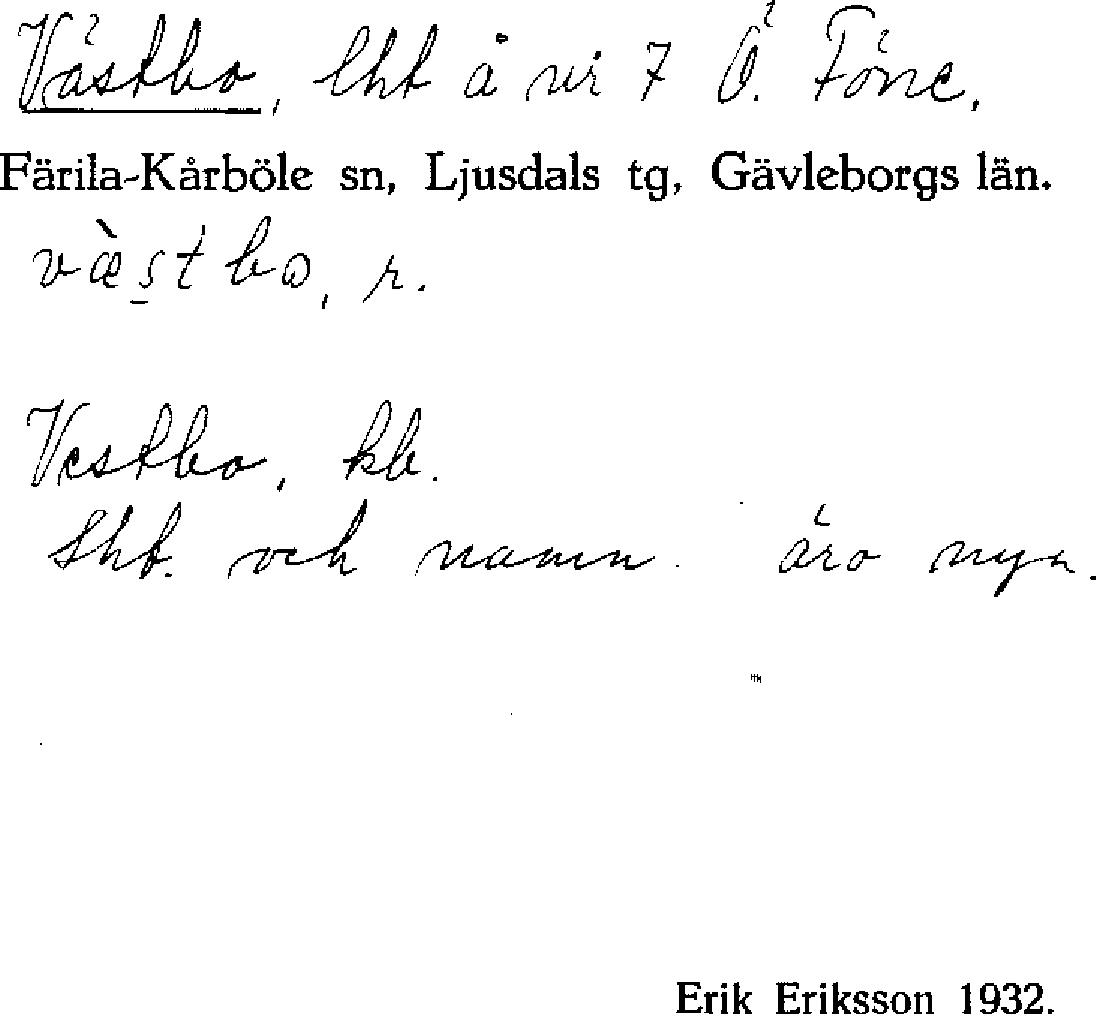 Västbo, lht å nr 7 Ö.Föne.
Färila-Kårböle sn, Ljusdals tg, Gävleborgs län.
væ̀s̠tbo, r.
Vestbo, kb.
Lht. och namn äro nya.
Erik Eriksson 1932.